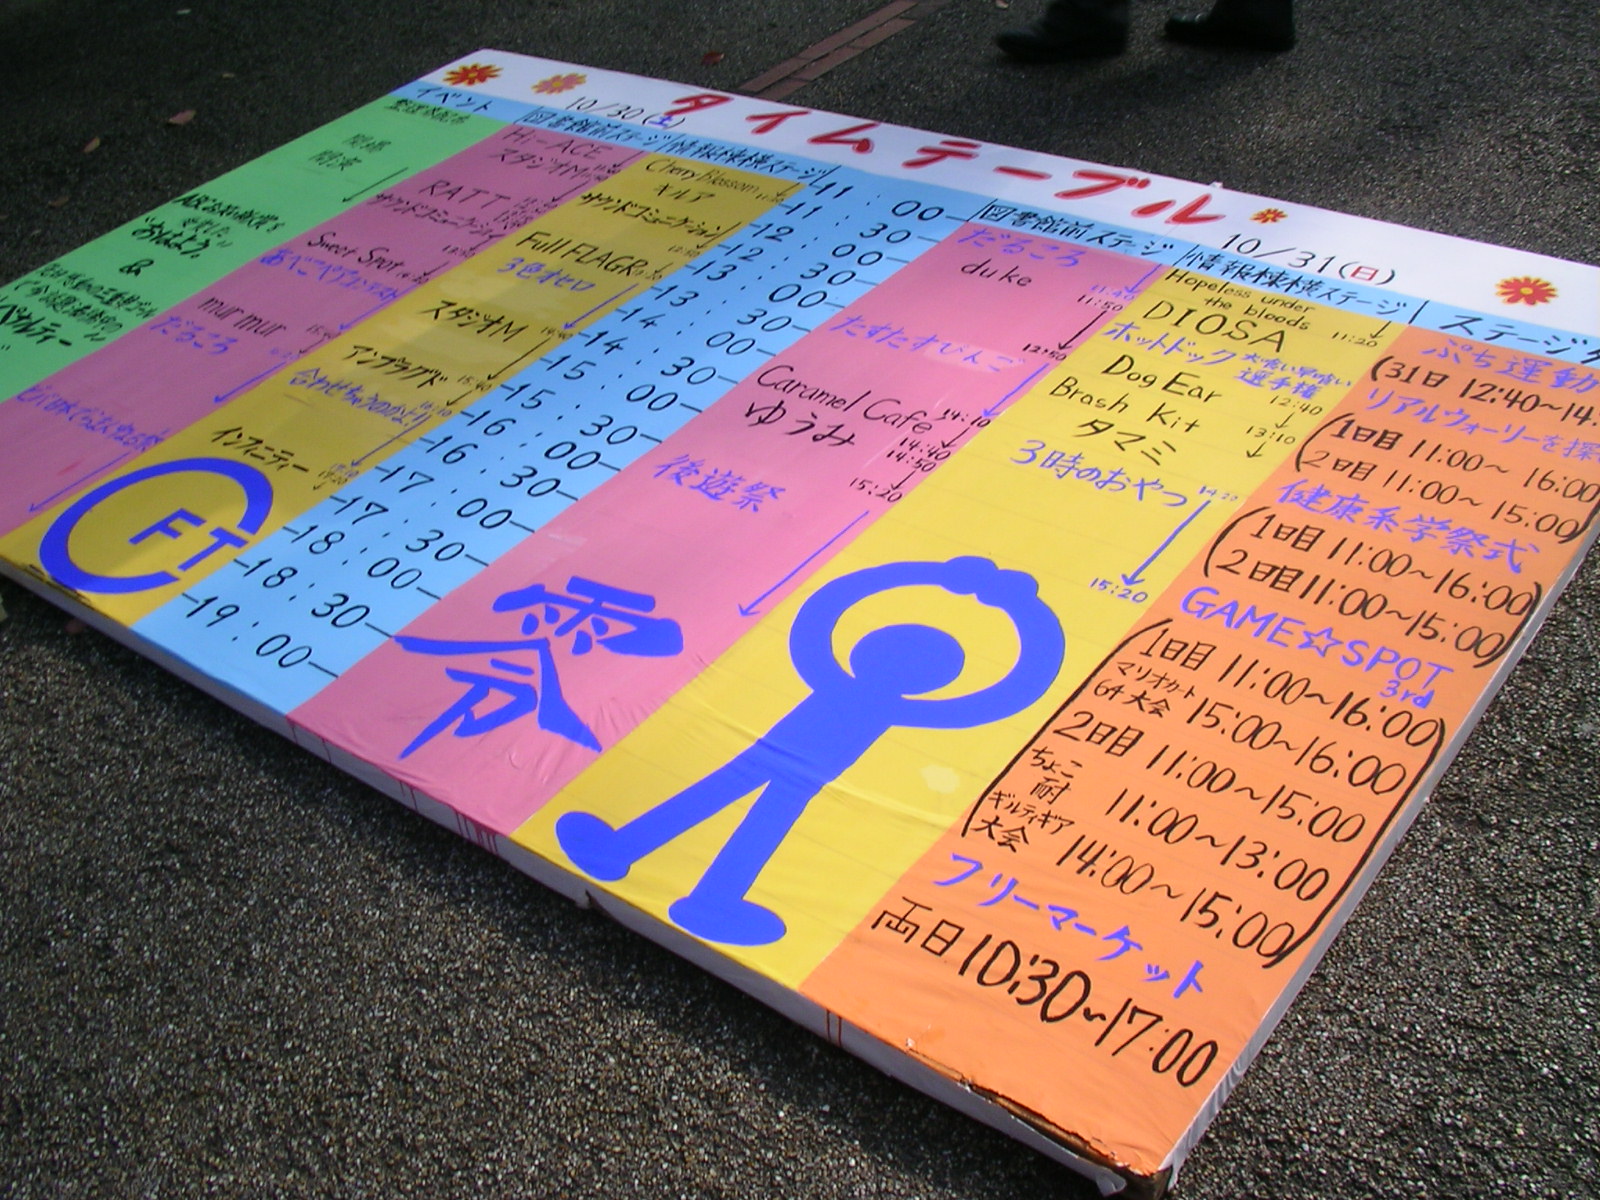 タイムテーブル
10/30(土)
イベント
図書館前ステージ
情報棟横ステージ
&
Hi-ACE
スタジオM
RATT
サウンドコミュニケーション
Sweet Spot
あべこべコンテスト
murmur
だるころ
Cherry Blossom
キルア
サウンドコミュニケーション
Full FLAGR
3色オセロ
スタジオM
アンプラグド
インフィニティー
CFT
11:00
11:30
12:00
12:30
13:00
13:30
14:00
14:30
15:00
15:30
16:00
16:30
17:00
17:30
18:00
18:30
19:00
10/31(日)
図書館前ステージ
情報棟横ステージ
ステージ
だるころ
11:40
duke
11:50
12:50
たすたすひんご
14:10
Caramel Cafe
14:40
ゆうみ
14:50
15:20
後遊祭
零
Hopeless under
the bloods
11:20
DIOSA
ホットドック大喰い早喰い
選手権
12:40
Dog Ear
13:10
Brash Kit
タマミ
14:20
3時のおやつ
15:20
ぷち運動
(31日 12:40~14:
リアルウォーリーを探
1日目 11:00~16:00
2日目 11:00~15:00
健康系学祭式
1日目 11:00~16:00
2日目 11:00~15:00
GAME☆SPOT
3rd
1日目 11:00~16:00
マリオカート
64大会 15:00~16:00
2日目 11:00~15:00
ちょこ
耐 11:00~13:00
ギルティギア
大会 14:00~15:00
フリーマーケット
両日10:30~17:00